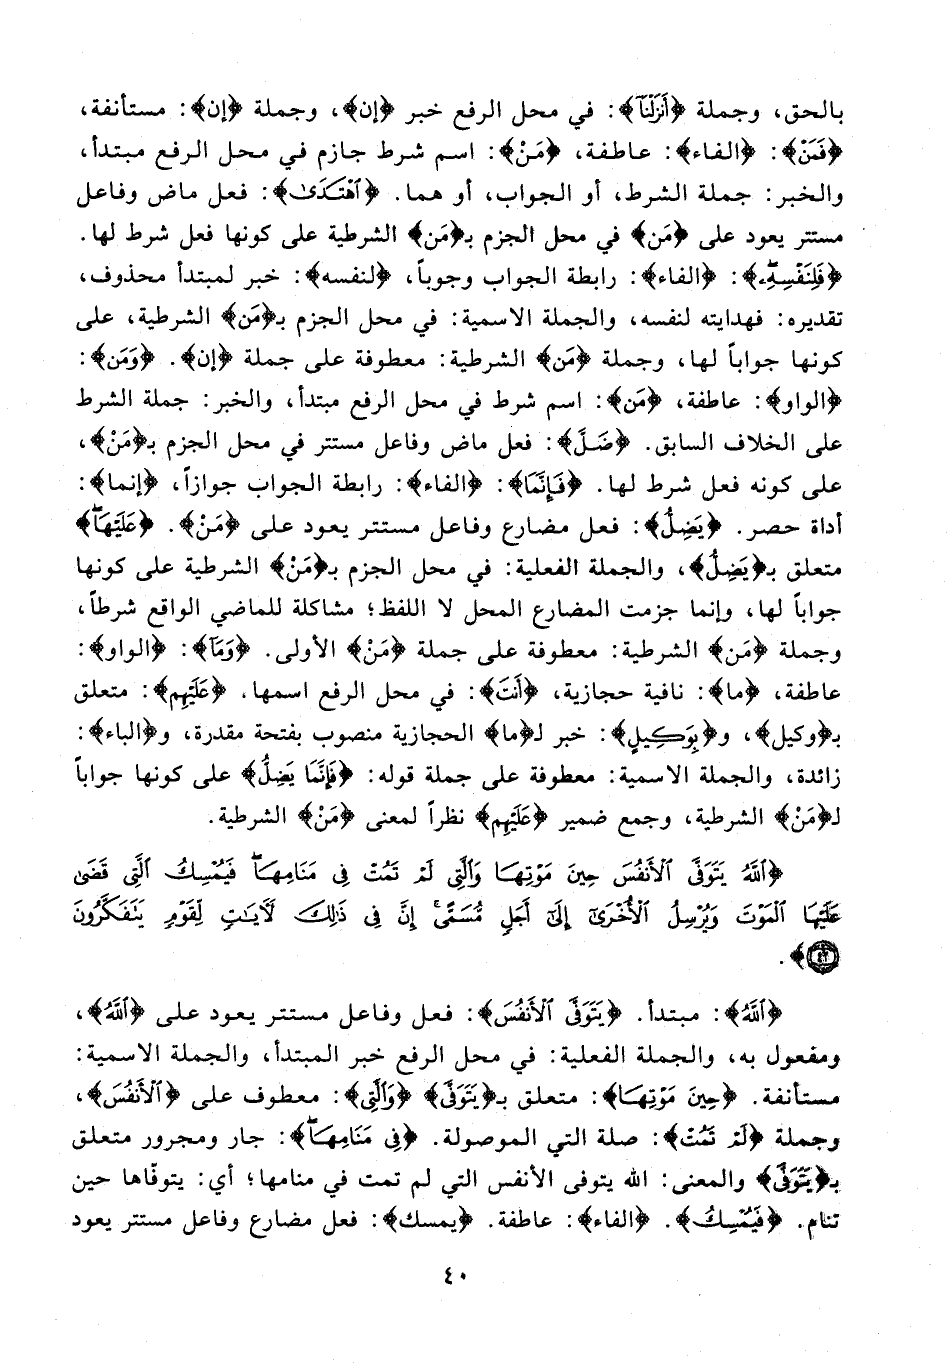 بالحق، وجملة ﴿أَنزَلْنَآ﴾: في محل الرفع خبر ﴿إن﴾، وجملة ﴿إن﴾: مستأنفة،
﴿فَمَنْ﴾: ﴿الفاء﴾: عاطفة، ﴿مَنْ﴾: اسم شرط جازم في محل الرفع مبتدأ،
والخبر: جملة الشرط، أو الجواب، أو هما. ﴿ٱهْتَدَىٰ﴾: فعل ماض وفاعل
مستتر يعود على ﴿مَن﴾ في محل الجزم بـ﴿مَن﴾ الشرطية على كونها فعل شرط لها.
﴿فَلِنَفْسِهِۦۖ﴾: ﴿الفاء﴾: رابطة الجواب وجوباً، ﴿لنفسه﴾: خبر لمبتدأ محذوف،
تقديره: فهدايته لنفسه، والجملة الاسمية: في محل الجزم بـ﴿مَن﴾ الشرطية، على
كونها جواباً لها، وجملة ﴿مَن﴾ الشرطية: معطوفة على جملة ﴿إن﴾. ﴿وَمَن﴾:
﴿الواو﴾: عاطفة، ﴿مَن﴾: اسم شرط في محل الرفع مبتدأ، والخبر: جملة الشرط
على الخلاف السابق. ﴿ضَلَّ﴾: فعل ماض وفاعل مستتر في محل الجزم بـ﴿مَنْ﴾،
على كونه فعل شرط لها. ﴿فَإِنَّمَا﴾: ﴿الفاء﴾: رابطة الجواب جوازاً، ﴿إنما﴾:
أداة حصر. ﴿يَضِلُّ﴾: فعل مضارع وفاعل مستتر يعود على ﴿مَنْ﴾. ﴿عَلَيْهَاۖ﴾
متعلق بـ﴿يَضِلُّ﴾، والجملة الفعلية: في محل الجزم بـ﴿مَنْ﴾ الشرطية على كونها
جواباً لها، وإنما جزمت المضارع المحل لا اللفظ؛ مشاكلة للماضي الواقع شرطاً،
وجملة ﴿مَن﴾ الشرطية: معطوفة على جملة ﴿مَنْ﴾ الأولى. ﴿وَمَآ﴾: ﴿الواو﴾:
عاطفة، ﴿ما﴾: نافية حجازية، ﴿أَنتَ﴾: في محل الرفع اسمها. ﴿عَلَيْهِم﴾: متعلق
بـ﴿وكيل﴾، و﴿بِوَكِيلٍ﴾: خبر لـ﴿ما﴾ الحجازية منصوب بفتحة مقدرة، و﴿الباء﴾:
زائدة، والجملة الاسمية: معطوفة على جملة قوله: ﴿فَإِنَّمَا يَضِلُّ﴾ على كونها جواباً
لـ﴿مَنْ﴾ الشرطية، وجمع ضمير ﴿عَلَيْهِم﴾ نظراً لمعنى ﴿مَنْ﴾ الشرطية.
﴿ٱللَّهُ يَتَوَفَّى ٱلْأَنفُسَ حِينَ مَوْتِهَا وَٱلَّتِى لَمْ تَمُتْ فِى مَنَامِهَاۖ فَيُمْسِكُ ٱلَّتِى قَضَىٰ
عَلَيْهَا ٱلْمَوْتَ وَيُرْسِلُ ٱلْأُخْرَىٰٓ إِلَىٰٓ أَجَلٍ مُّسَمًّىۚ إِنَّ فِى ذَٰلِكَ لَآيَاتٍ لِّقَوْمٍ يَتَفَكَّرُونَ
٤٢﴾.
﴿ٱللَّهُ﴾: مبتدأ. ﴿يَتَوَفَّى ٱلْأَنفُسَ﴾: فعل وفاعل مستتر يعود على ﴿ٱللَّهُ﴾،
ومفعول به، والجملة الفعلية: في محل الرفع خبر المبتدأ، والجملة الاسمية:
مستأنفة. ﴿حِينَ مَوْتِهَا﴾: متعلق بـ﴿يَتَوَفَّى﴾ ﴿وَٱلَّتِى﴾: معطوف على ﴿ٱلْأَنفُسَ﴾،
وجملة ﴿لَمْ تَمُتْ﴾: صلة التي الموصولة. ﴿فِى مَنَامِهَاۖ﴾: جار ومجرور متعلق
بـ﴿يَتَوَفَّى﴾ والمعنى: الله يتوفى الأنفس التي لم تمت في منامها؛ أي: يتوفّاها حين
تنام. ﴿فَيُمْسِكُ﴾. ﴿الفاء﴾: عاطفة. ﴿يمسك﴾: فعل مضارع وفاعل مستتر يعود
٤٠